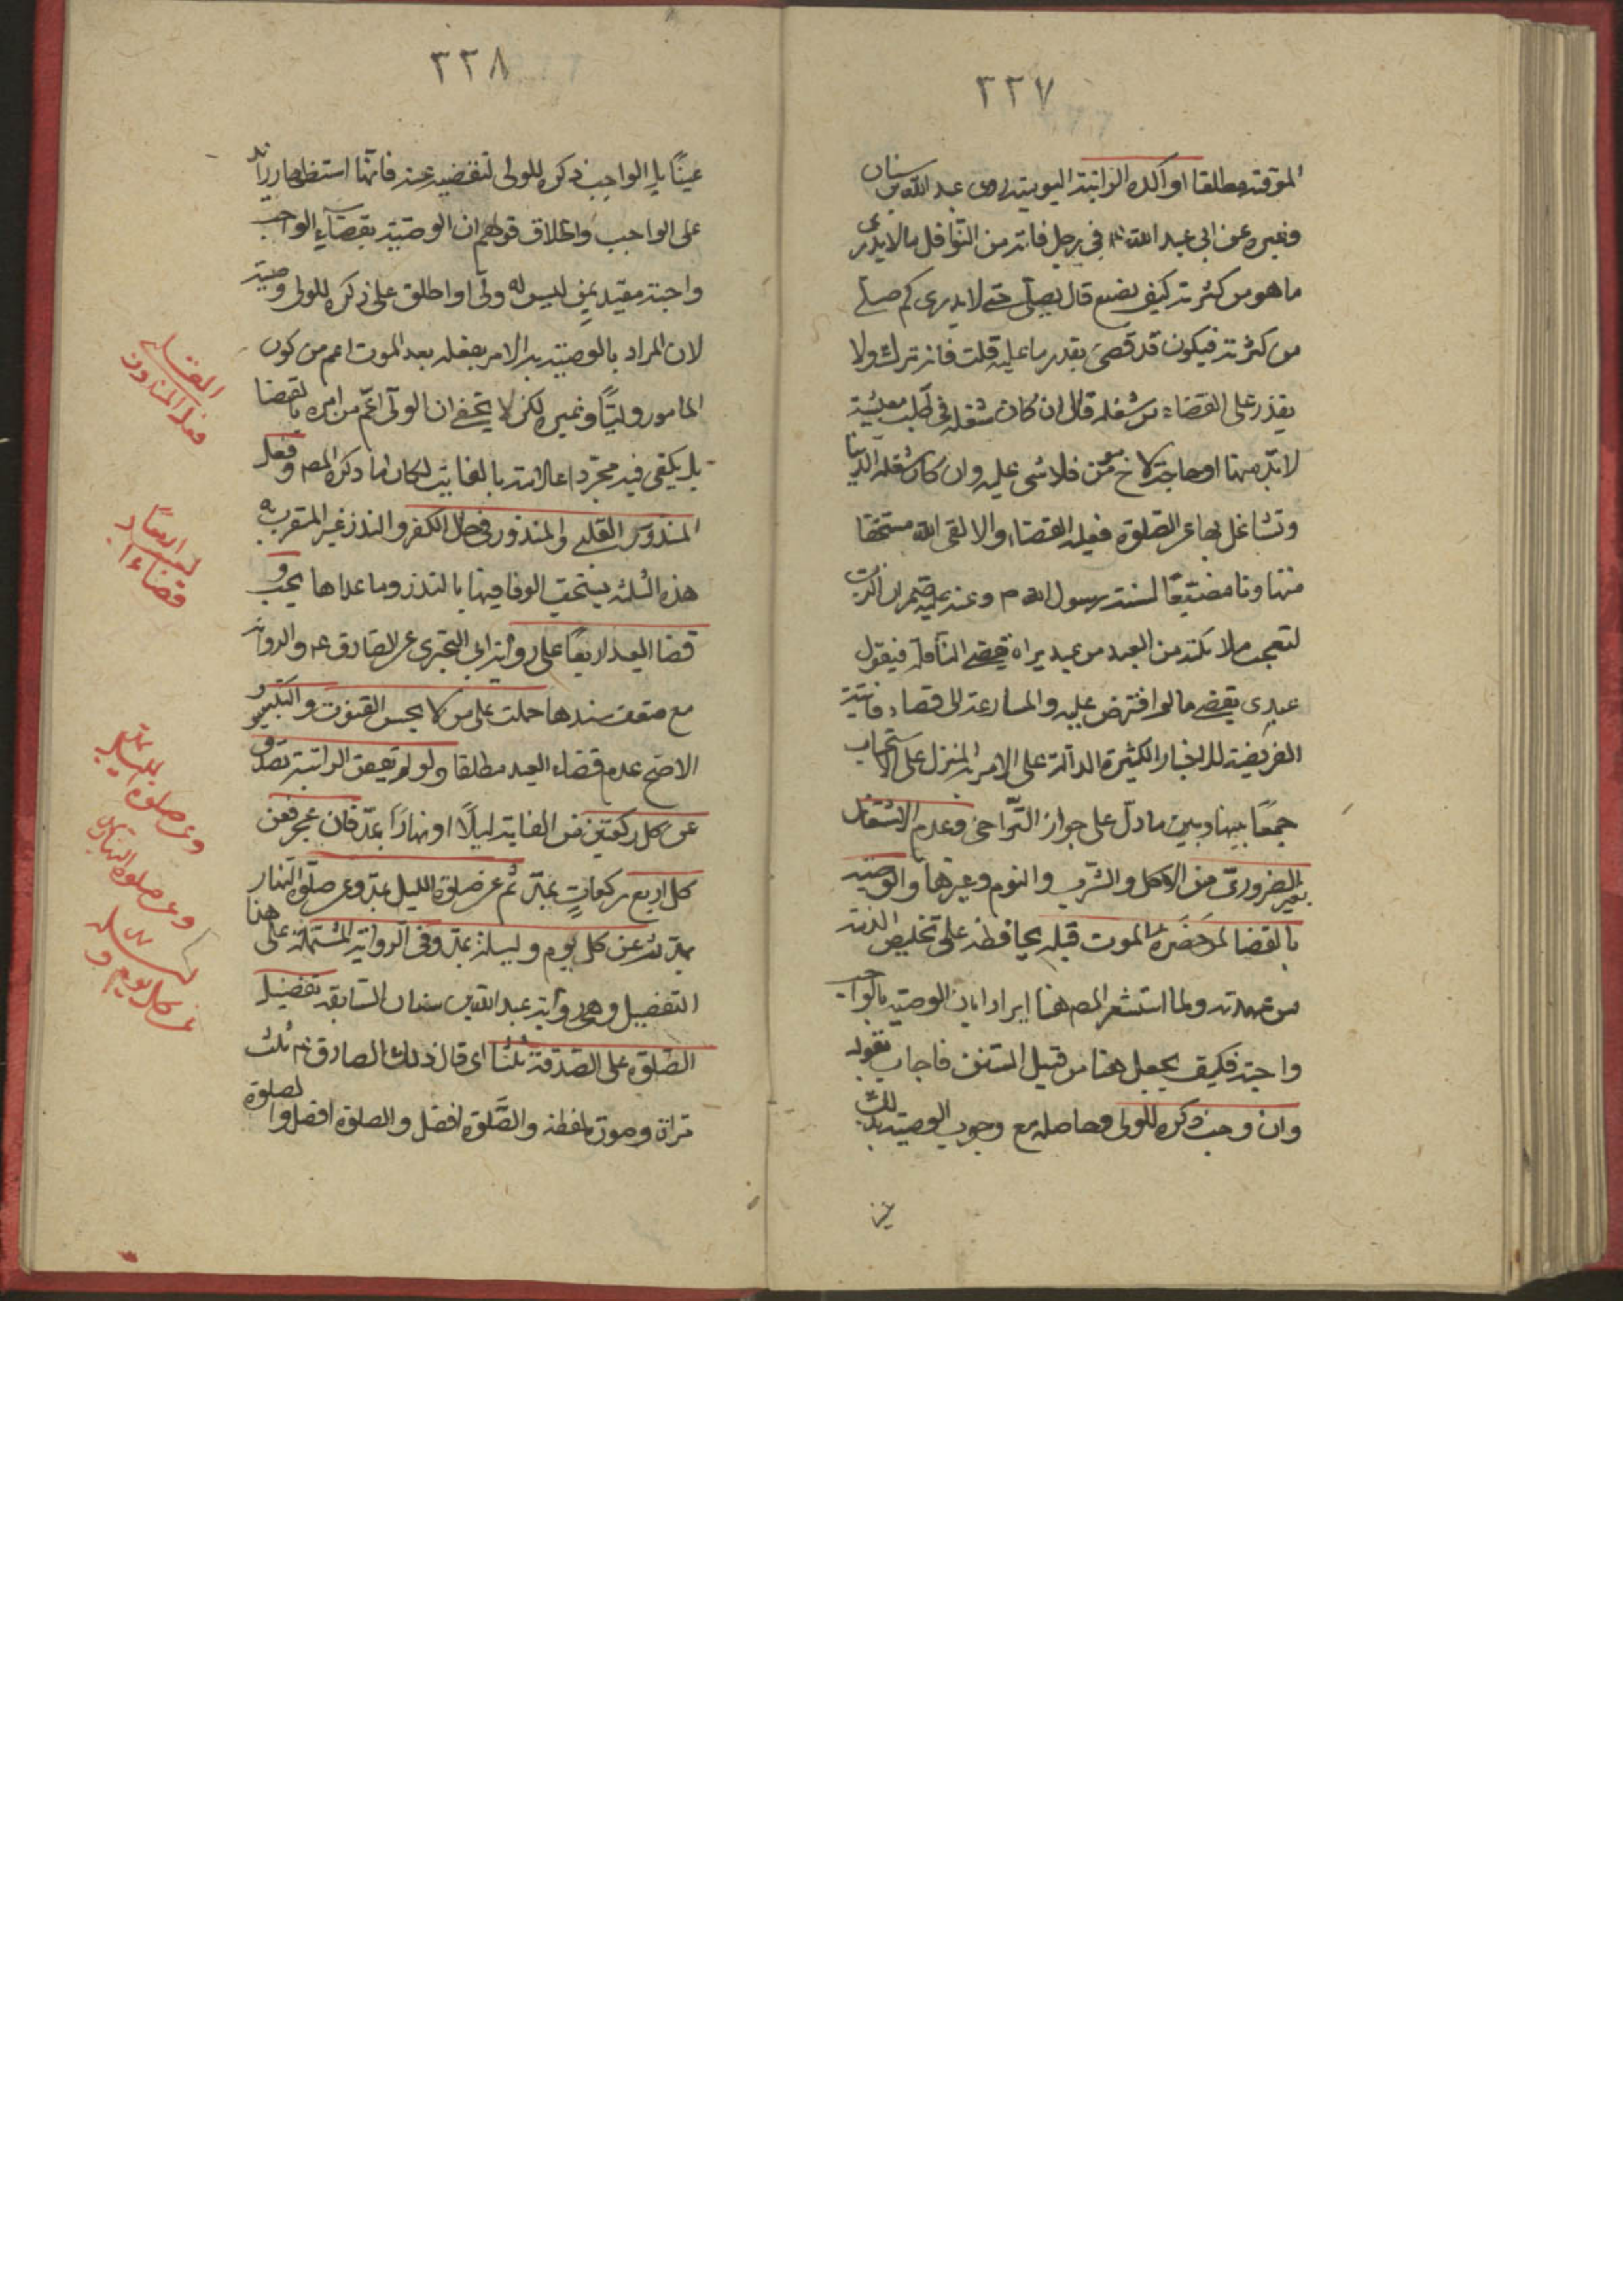 ٣٣٧
الموقتة مطلقا او آكده الراتبة اليومية روى عبد الله بن سنان
وغيره عن ابى عبد الله ع في رجل فاته من النوافل ما لا يدرى
ما هو من كثرته كيف يصنع قال يصلى حتى لا يدرى كم صلى
من كثرته فيكون قد قضى بقدر ما عليه قلت فانه ترك ولا
يقدر على القضاء من شغله قال ان كان شغله في طلب معيشة
لا بد منها او حاجة لاخ مؤمن فلا شى عليه وان كان شغله الدنيا
وتشاغل بها عن الصلوة فعليه القضاء والا لقى الله مستخفا
متهاونا مضيعا لسنة رسول الله ص وعنه عليه السلم ان الرب
لتعجب ملائكته من العبد من عبيده يراه يقضى النافلة فيقول
عبدى يقضى ما لم افترض عليه والمسارعة الى قضاء فائتة
الفريضة للاخبار الكثيرة الدالة على الامر به المنزل على الاستحباب
جمعًا بينها وبين ما دل على جواز التراخى وعدم الاشتغال
بغير الضرورى من الاكل والشرب والنوم وغيرها والوصية
بالقضا لمن حضره الموت قبله يحافظه على تخليص الذمة
من عهدته ولما استشعر المص هنا ايرادا بان الوصية بالواجب
واجبة فكيف يجعل هنا من قبيل السنن فاجاب بقوله
وان وجب ذكره للولى وحاصله مع وجوب الوصية بذلك
٣٣٨
عينًا بل الواجب ذكره للولى لتقضيه عنه فانها استظهار زائد
على الواجب واطلاق قولهم ان الوصية بقضاء الواجب
واجبة مقيد بمن ليس له ولى او اطلق على ذكره للولى وصية
لان المراد بالوصية به الامر بفعله بعد الموت اعم من كون
المامور وليًا وغيره لكن لا يخفى ان الولى اعم من امره بالقضا
بل يكفى فيه مجرد اعلامه بالفايت لمكان ما ذكره المص وفعل
المنذور القلبى والمنذور في حال الكفر والنذر غير المتقرب به
هذه الثلثة يستحب الوفا فيها بالنذر وما عداها يجب و
قضا العيد اربعًا على رواية ابى البخترى عن الصادق ع والرواية
مع ضعف سندها حملت على من لا يحسن القنوت والتكبير و
الاصح عدم قضاء العيد مطلقا ولو لم يقض الراتبة تصدق
عن كل ركعتين من الفايتة ليلًا او نهارًا بمد فان عجز فعن
كل اربع ركعاتٍ بمد ثم عن صلوة الليل بمد وعن صلوة النهار
بمد ثم عن كل يوم وليلة بمد وفى الرواية المشتملة على هذا
التفصيل وهى رواية عبد الله بن سنان السابقة تفضيل
الصلوة على الصدقة ثلثًا اى قال ذلك الصادق ع ثلث
مرات وصورة لفظه والصلوة افضل والصلوة افضل والصلوة
القضاء
فعل المنذور
اربعًا
قضاء
وعن صلوة
وعن صلوة النهار
عن كل يوم و